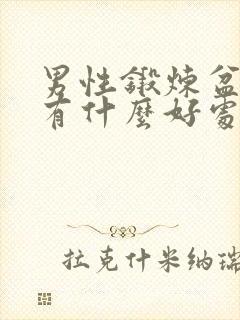 男性鍛煉盆
有什麼好處
拉克什米納瑞